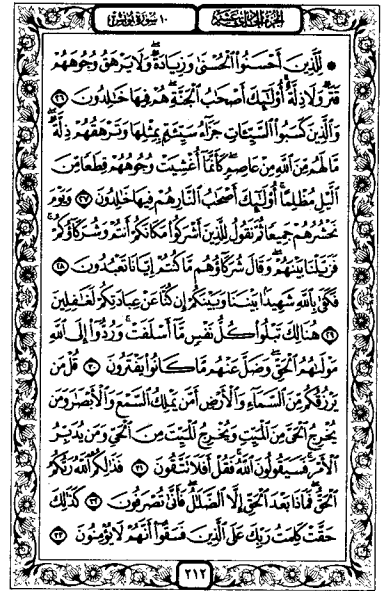 ١٠ سورة يونس الجزء الحادي عشر
۞ لِّلَّذِينَ أَحْسَنُوا۟ ٱلْحُسْنَىٰ وَزِيَادَةٌ ۖ وَلَا يَرْهَقُ وُجُوهَهُمْ
قَتَرٌ وَلَا ذِلَّةٌ ۚ أُو۟لَـٰٓئِكَ أَصْحَـٰبُ ٱلْجَنَّةِ ۖ هُمْ فِيهَا خَـٰلِدُونَ ٢٦
وَٱلَّذِينَ كَسَبُوا۟ ٱلسَّيِّـَٔاتِ جَزَآءُ سَيِّئَةٍۭ بِمِثْلِهَا وَتَرْهَقُهُمْ ذِلَّةٌ ۖ
مَّا لَهُم مِّنَ ٱللَّهِ مِنْ عَاصِمٍ ۖ كَأَنَّمَآ أُغْشِيَتْ وُجُوهُهُمْ قِطَعًا مِّنَ
ٱلَّيْلِ مُظْلِمًا ۚ أُو۟لَـٰٓئِكَ أَصْحَـٰبُ ٱلنَّارِ ۖ هُمْ فِيهَا خَـٰلِدُونَ ٢٧ وَيَوْمَ
نَحْشُرُهُمْ جَمِيعًا ثُمَّ نَقُولُ لِلَّذِينَ أَشْرَكُوا۟ مَكَانَكُمْ أَنتُمْ وَشُرَكَآؤُكُمْ ۚ
فَزَيَّلْنَا بَيْنَهُمْ ۖ وَقَالَ شُرَكَآؤُهُم مَّا كُنتُمْ إِيَّانَا تَعْبُدُونَ ٢٨
فَكَفَىٰ بِٱللَّهِ شَهِيدًۢا بَيْنَنَا وَبَيْنَكُمْ إِن كُنَّا عَنْ عِبَادَتِكُمْ لَغَـٰفِلِينَ
٢٩ هُنَالِكَ تَبْلُوا۟ كُلُّ نَفْسٍ مَّآ أَسْلَفَتْ ۚ وَرُدُّوٓا۟ إِلَى ٱللَّهِ
مَوْلَىٰهُمُ ٱلْحَقِّ ۖ وَضَلَّ عَنْهُم مَّا كَانُوا۟ يَفْتَرُونَ ٣٠ قُلْ مَن
يَرْزُقُكُم مِّنَ ٱلسَّمَآءِ وَٱلْأَرْضِ أَمَّن يَمْلِكُ ٱلسَّمْعَ وَٱلْأَبْصَـٰرَ وَمَن
يُخْرِجُ ٱلْحَىَّ مِنَ ٱلْمَيِّتِ وَيُخْرِجُ ٱلْمَيِّتَ مِنَ ٱلْحَىِّ وَمَن يُدَبِّرُ
ٱلْأَمْرَ ۚ فَسَيَقُولُونَ ٱللَّهُ ۚ فَقُلْ أَفَلَا تَتَّقُونَ ٣١ فَذَٰلِكُمُ ٱللَّهُ رَبُّكُمُ
ٱلْحَقُّ ۖ فَمَاذَا بَعْدَ ٱلْحَقِّ إِلَّا ٱلضَّلَـٰلُ ۖ فَأَنَّىٰ تُصْرَفُونَ ٣٢ كَذَٰلِكَ
حَقَّتْ كَلِمَتُ رَبِّكَ عَلَى ٱلَّذِينَ فَسَقُوٓا۟ أَنَّهُمْ لَا يُؤْمِنُونَ ٣٣
٢١٢